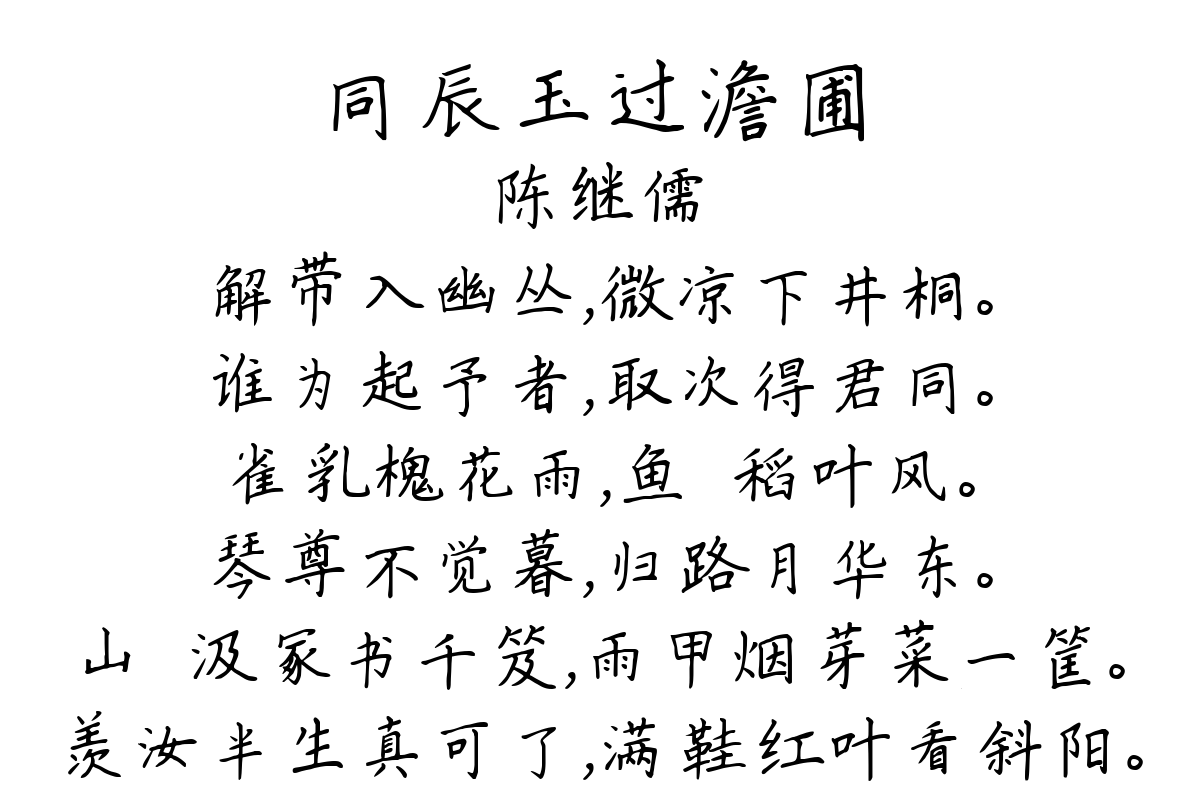 同辰玉过澹圃
陈继儒
解带入幽丛,微凉下井桐。
谁为起予者,取次得君同。
雀乳槐花雨,鱼 稻叶风。
琴尊不觉暮,归路月华东。
山 汲冢书千笈,雨甲烟芽菜一筐。
羡汝半生真可了,满鞋红叶看斜阳。